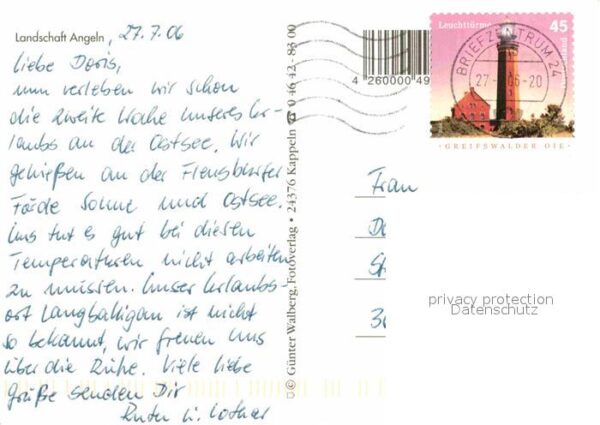 Landschaft Angeln, 27.7.06
Liebe Doris,
nun verleben wir schon
die zweite Woche unseres Ur-
laubs an der Ostsee. Wir
genießen an der Flensburger
Förde Sonne und Ostsee.
Uns tut es gut bei diesen
Temperaturen nicht arbeiten
zu müssen. Unser Urlaubs-
ort Langballigau ist nicht
so bekannt, wir freuen uns
über die Ruhe. Viele liebe
Grüße senden Dir
Ruth u. Lothar
© Günter Walberg, Fotoverlag • 24376 Kappeln ☎ 0 46 42 - 83 00
4 260000 49
Leuchttürme 45
BRIEFZENTRUM 24
06-20
GREIFSWALDER OIE
Frau
privacy protection
Datenschutz